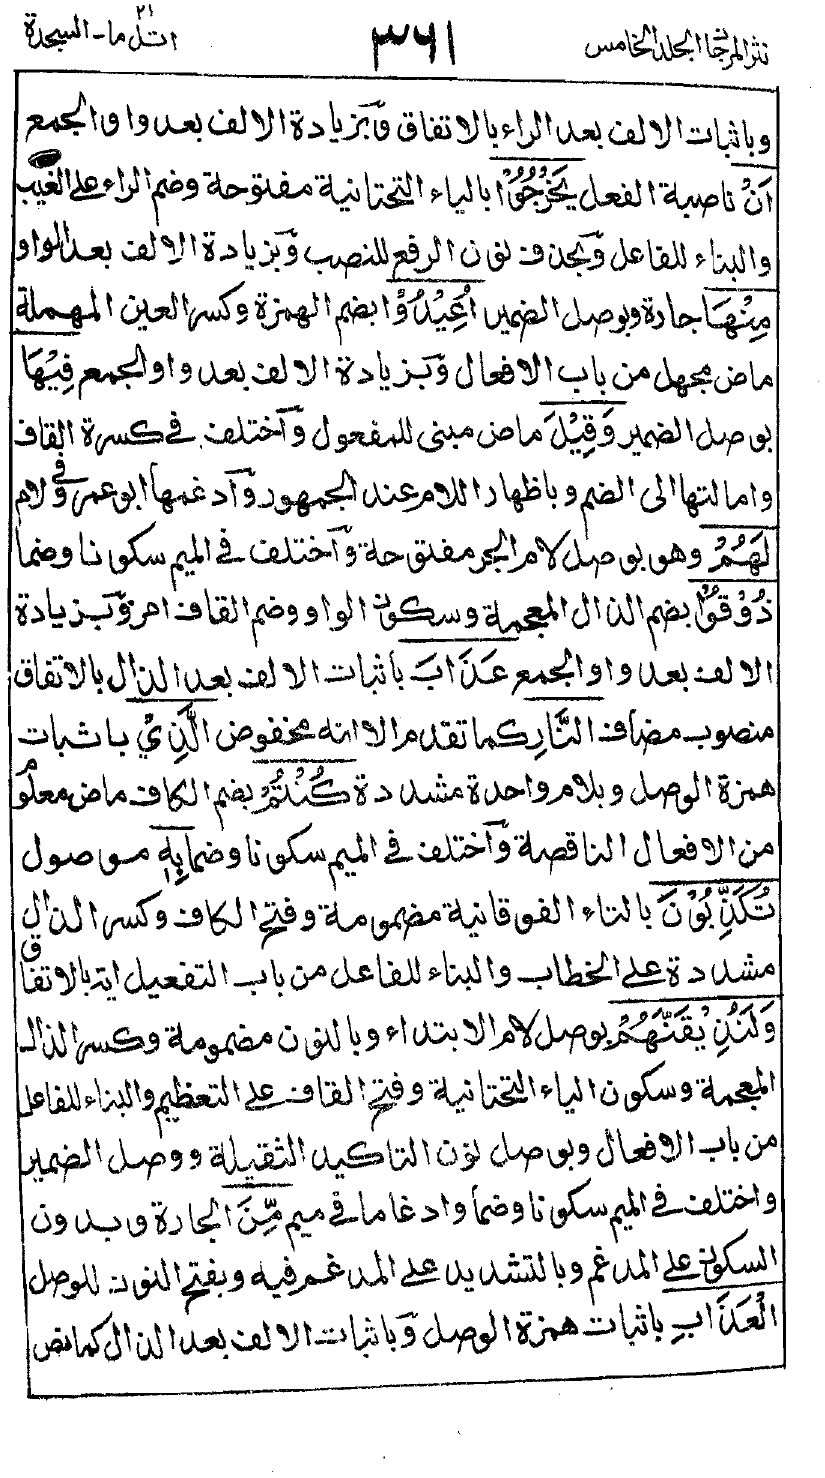 نثر المرجان المجلد الخامس ٣٦١ اتل ما ٢١ - السجدة
وباثبات الالف بعد الراء بالاتفاق وبزيادة الالف بعد واو الجمع
اَنْ ناصبة الفعل يَخْرُجُوْا بالياء التحتانية مفتوحة وضم الراء على الغيب
والبناء للفاعل وبحذف نون الرفع للنصب وبزيادة الالف بعد الواو
مِنْهَا جارة وبوصل الضمير اُعِيْدُوْا بضم الهمزة وكسر العين المهملة
ماض مجهل من باب الافعال وبزيادة الالف بعد واو الجمع فِيْهَا
بوصل الضمير وَقِيْلَ ماض مبنى للمفعول واختلف فى كسرة القاف
وامالتها الى الضم وباظهار اللام عند الجمهور وادغمها ابو عمرو فى لام
لَهُمْ وهو بوصل لام الجر مفتوحة واختلف فى الميم سكونا وضما
ذُوْقُوْا بضم الذال المعجمة وسكون الواو وضم القاف امر وبزيادة
الالف بعد واو الجمع عَذَابَ باثبات الالف بعد الذال بالاتفاق
منصوب مضاف النَّارِ كما تقدم الا انه مخفوض الَّذِيْ باثبات
همزة الوصل وبلام واحدة مشددة كُنْتُمْ بضم الكاف ماض معلوم
من الافعال الناقصة واختلف فى الميم سكونا وضما بِهٖ موصول
تُكَذِّبُوْنَ بالتاء الفوقانية مضمومة وفتح الكاف وكسر الذال
مشددة على الخطاب والبناء للفاعل من باب التفعيل اية بالاتفاق
وَلَنُذِيْقَنَّهُمْ بوصل لام الابتداء وبالنون مضمومة وكسر الذال
المعجمة وسكون الياء التحتانية وفتح القاف على التعظيم والبناء للفاعل
من باب الافعال وبوصل نون التاكيد الثقيلة ووصل الضمير
واختلف فى الميم سكونا وضما وادغاما فى ميم مِّنَ الجارة وبدون
السكون على المدغم وبالتشديد على المدغم فيه وبفتح النون للوصل
الْعَذَابِ باثبات همزة الوصل وباثبات الالف بعد الذال كما نص